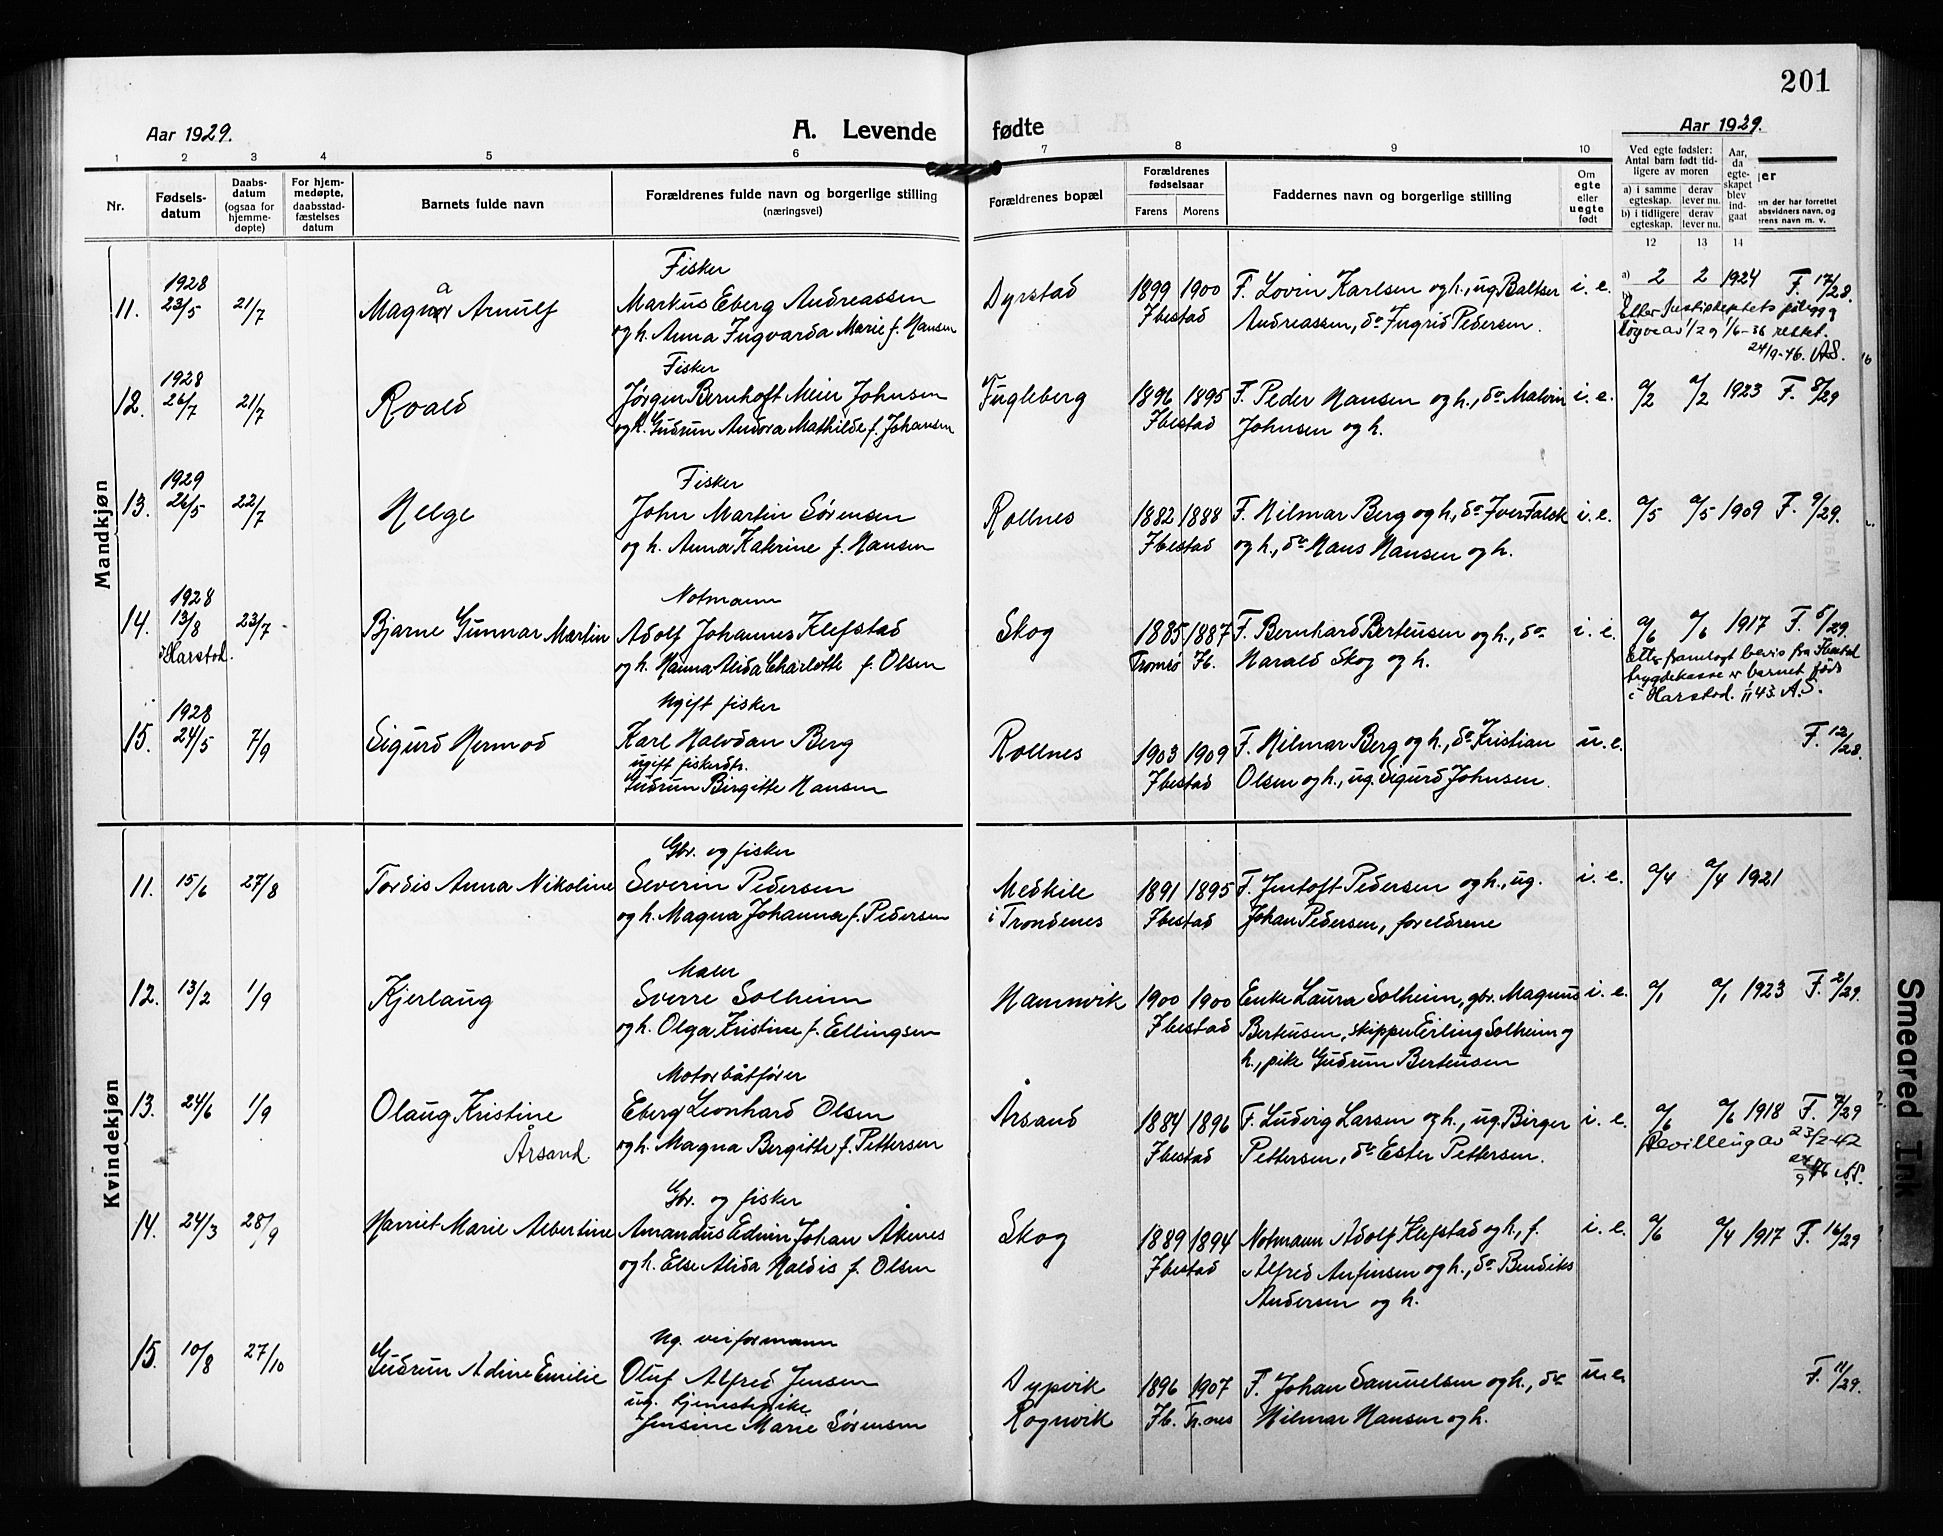 201
Aar 1929.
A. Levende fødte
Aar 1929.
1 2 3 4 5 6 7 8 9 10
Nr.
Fødsels-
datum
Daabs-
datum
(ogsaa for
hjemme-
døpte)
For hjem-
medøpte,
daabsstad-
fæstelses
datum
Barnets fulde navn
Forældrenes fulde navn og borgerlige stilling
(næringsvei)
Forældrenes bopæl
Forældrenes
fødselsaar
Farens Morens
Faddernes navn og borgerlige stilling
Om
egte
eller
uegte
født
Ved egte fødsler:
Antal barn født tid-
ligere av moren
a) i samme
egteskap.
derav
lever nu.
b) i tidligere
egteskap.
derav
lever nu.
Aar,
da
egte-
skapet
blev
ind-
gaat
12 13 14
ger
en der har forrettet
absvidners navn, og
erens navn m. v.
Mandkjøn
11.
1928
23/5
21/7
Magnar Arnulf
a
Fisker
Markus Eberg Andreassen
og h. Anna Ingvarda Marie f. Hansen
Dyrstad
1899 1900
Ibestad
F. Lovin Karlsen og h., ug. Baltser
Andreassen, do Ingrid Pedersen.
i. e.
a) 2 2 1924 F. 17/28.
24/9-46. AS.
12.
1928
26/7
21/7
Roald
Fisker
Jørgen Bernhoft Meier Johnsen
og h. Gudrun Andora Mathilde f. Johansen
Fugleberg
1896 1895
Ibestad
F. Peder Hansen og h., do Malvin
Johnsen og h.
i. e.
a/2 a/2 1923 F. 8/29
13.
1929
26/5
22/7
Helge
Fisker
John Martin Sørensen
og h. Anna Katrine f. Hansen
Rollnes
1882 1888
Ibestad
F. Hilmar Berg og h., do Iver Falck
og h., do Hans Hansen og h.
i. e.
a/5 a/5 1909 F. 9/29.
14.
1928
13/8
Harstad.
23/7
Bjarne Gunnar Martin
Notmann
Adolf Johannes Klefstad
og h. Hanna Alida Charlotte f. Olsen
Skog
1885 1887
Tromsø Ib.
F. Bernhard Berteusen og h., do
Harald Skog og h.
i. e.
a/6 a/6 1917 F. 5/29.
Etter framlagt bevis fra Ibestad
trygdekasse er barnet født
i Harstad. 1/11 43. A.S.
15.
1928
24/5
7/9
Sigurd Hermod
Ugift fisker
Karl Halvdan Berg
ugift fiskerdtr.
Gudrun Birgitte Hansen
Rollnes
1903 1909
Ibestad
F. Hilmar Berg og h., do Kristian
Olsen og h., ug. Sigurd Johnsen.
u. e.
F. 12/28.
Kvindekjøn
11.
15/6
27/8
Tordis Anna Nikoline
Gbr. og fisker
Severin Pedersen
og h. Magna Johanna f. Pedersen
Medkile
i Trondenes
1891 1895
Ibestad
F. Jentoft Pedersen og h., ug.
Johan Pedersen, foreldrene
i. e.
a/4 a/4 1921
12.
13/2
1/9
Kjerlaug
Maler
Sverre Solheim
og h. Olga Kristine f. Ellingsen
Hamnvik
1900 1900
Ibestad
Enke Laura Solheim, gbr. Magnus
Berteusen, skipper Erling Solheim og
h., pike Gudrun Berteusen
i. e.
a/1 a/1 1923 F. 2/29.
13.
24/6
1/9
Olaug Kristine
Årsand
Motorbåtfører
Eberg Leonhard Olsen
og h. Magna Bergitte f. Pettersen
Årsand
1884 1896
Ibestad
F. Ludvig Larsen og h., ug. Birger
Pettersen, do Ester Pettersen.
i. e.
a/6 a/6 1918 F. 7/29
Bevilling av 23/2-42
24/9 46 AS.
14.
24/3
28/9
Harriet Marie Albertine
Gbr. og fisker
Amandus Edvin Johan Åkenes
og h. Else Alida Haldis f. Olsen
Skog
1889 1894
Ibestad
Notmann Adolf Klefstad og h., f.
Alfred Anfinsen og h., do Bendiks
Andersen og h.
i. e.
a/6 a/4 1917 F. 16/29
15.
10/8
27/10
Gudrun Adine Emilie
Ug. veiformann
Oluf Alfred Jensen
ug. tjenestpike
Jensine Marie Sørensen
Dypvik
Rognvik
1896 1907
Ib. Tr.nes
F. Johan Samuelsen og h., do
Hilmar Hansen og h.
u. e.
F. 11/29.
Smeared Ink